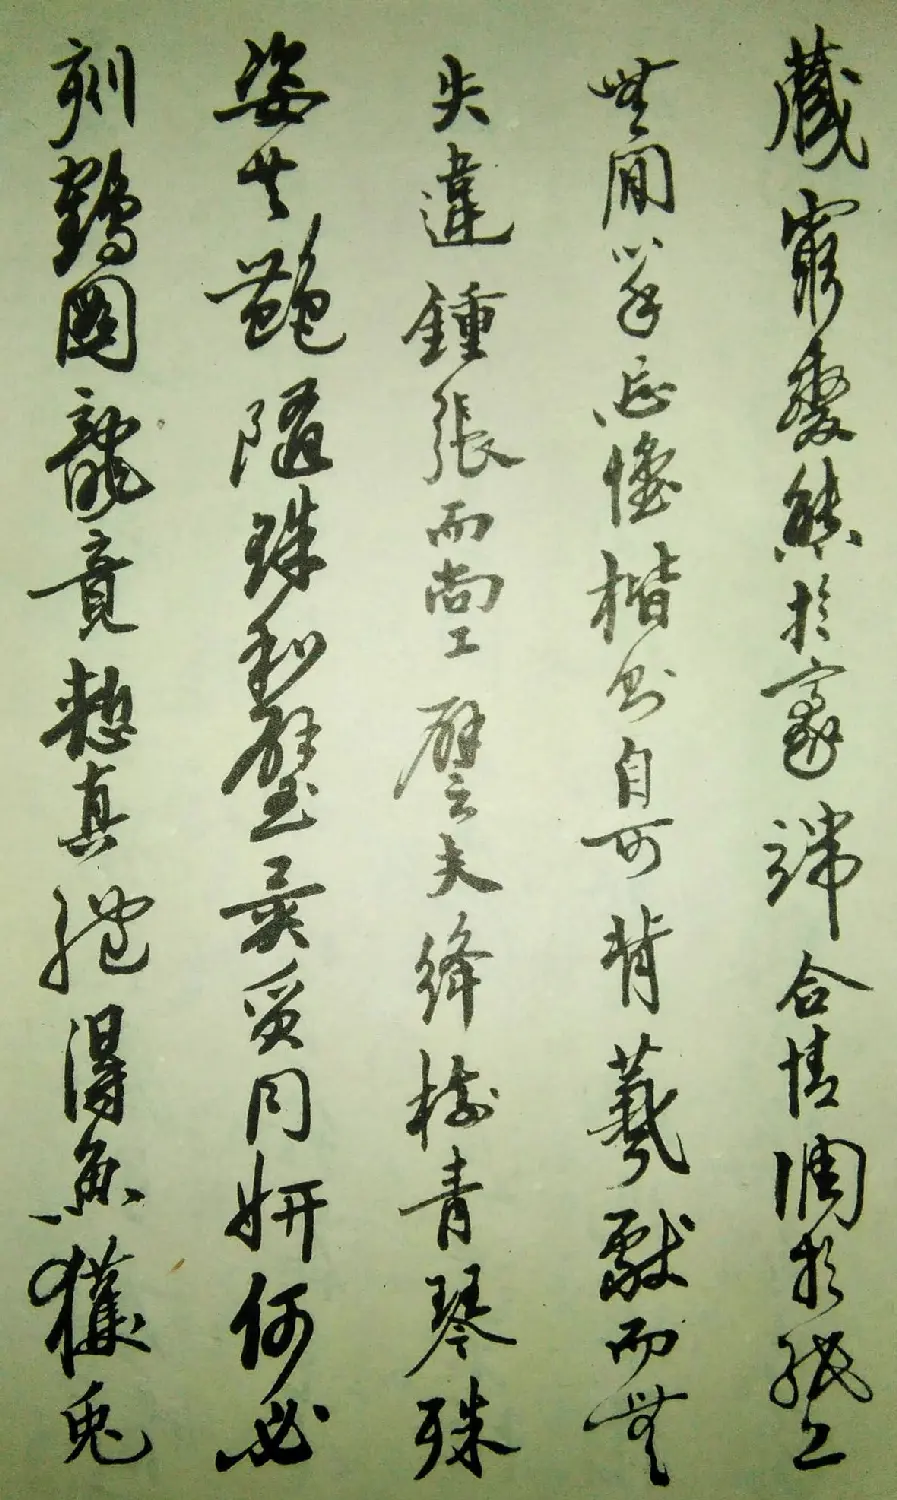 藏窮變態於豪端合情調於紙上
無閒心手忘懷楷則自可背羲獻而無
失違鍾張而尚工譬夫絳樹青琴殊
姿共艷隨珠和璧異質同妍何必
刻鶴圖龍竟慙真體得魚獲兎